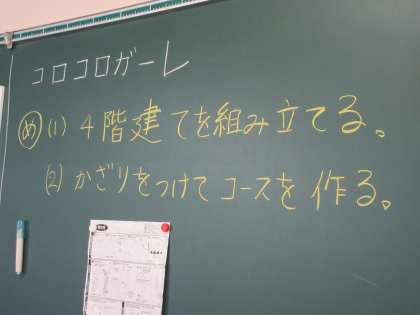 コロコロガーレ
め (1) 4階建てを組み立てる。
(2) かざりをつけてコースを作る。